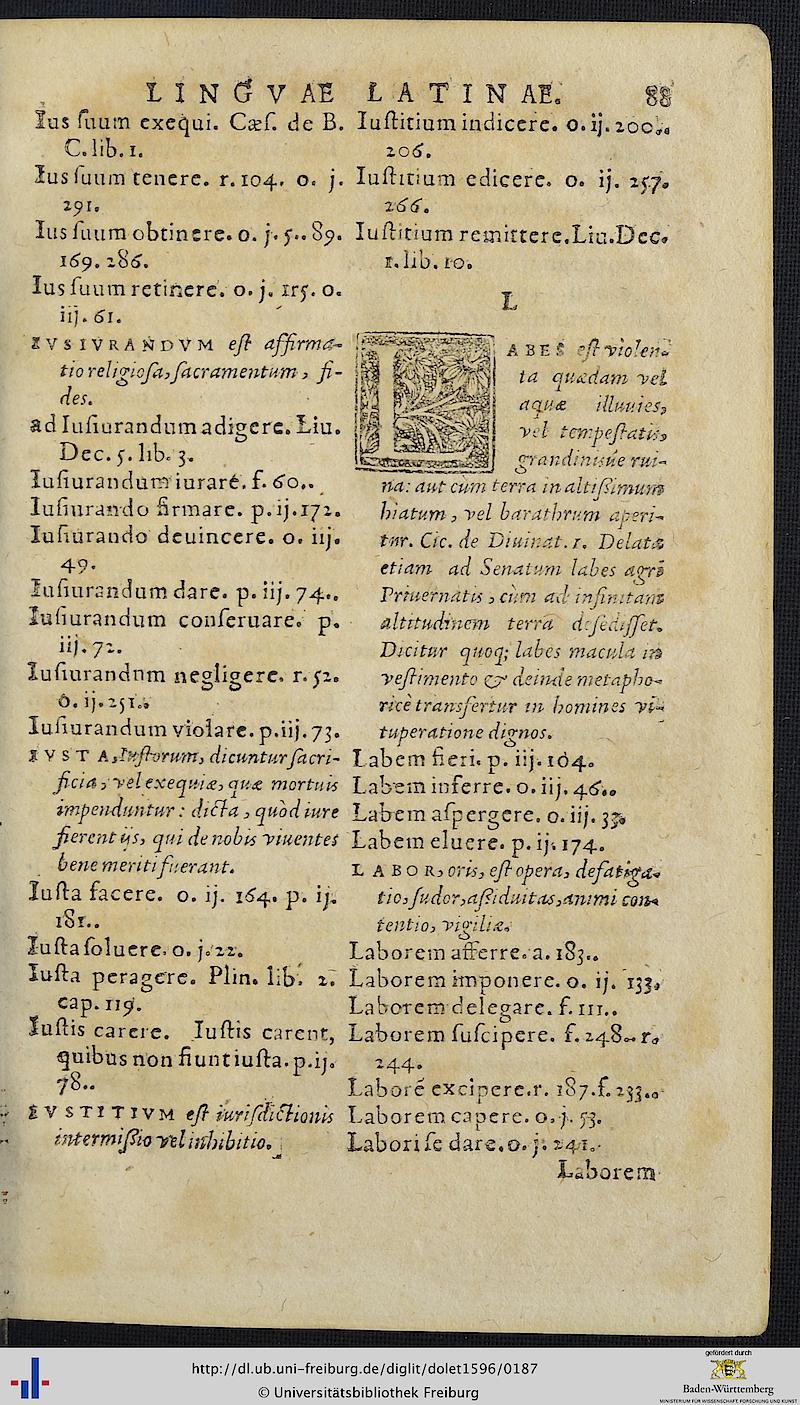 LINGVAE LATINAE. 88
Ius ſuum exequi. Cæſ. de B.
C. lib. 1.
Ius ſuum tenere. r. 104. o. j.
291.
Ius ſuum obtinere. o. j. 5.. 89.
169. 286.
Ius ſuum retinere. o. j. 115. o.
iij. 61.
IVSIVRANDVM eſt affirma-
tio religioſa, ſacramentum, fi-
des.
ad Iuſiurandum adigere. Liu.
Dec. 5. lib. 3.
Iuſiurandum iuraré. f. 60..
Iuſiurando firmare. p. ij. 172.
Iuſiurando deuincere. o. iij.
49.
Iuſiurandum dare. p. iij. 74..
Iuſiurandum conſeruare. p.
iij. 72.
Iuſiurandnm negligere. r. 52.
o. ij. 251..
Iuſiurandum violare. p. iij. 73.
IVSTA, Iuſtorum, dicuntur ſacri-
ficia, vel exequiæ, quæ mortuis
impenduntur: dicta, quòd iure
fierent ijs, qui de nobis viuentes
bene meriti fuerant.
Iuſta facere. o. ij. 164. p. ij.
181..
Iuſta ſoluere. o. j. 22.
Iuſta peragere. Plin. lib. 2.
cap. 119.
Iuſtis carere. Iuſtis carent,
quibus non fiunt iuſta. p. ij.
78..
IVSTITIVM eſt iuriſdictionis
intermiſsio vel inhibitio.
Iuſtitium indicere. o. ij. 200..
206.
Iuſtitium edicere. o. ij. 257.
266.
Iuſtitium remittere. Liu. Dec.
1. lib. 10.
L
LABES eſt violen-
ta quædam vel
aquæ illuuies,
vel tempeſtatis,
grandinisúe rui-
na: aut cùm terra in altiſsimum
hiatum, vel barathrum aperi-
tur. Cic. de Diuinat. 1. Delata
etiam ad Senatum labes agri
Priuernatis, cùm ad infinitam
altitudinem terra deſediſſet.
Dicitur quoq; labes macula in
veſtimento & deinde metapho-
ricè transfertur in homines vi-
tuperatione dignos.
Labem fieri. p. iij. 104.
Labem inferre. o. iij. 46..
Labem aſpergere. o. iij. 33.
Labem eluere. p. ij. 174.
LABOR, oris, eſt opera, defatiga-
tio, ſudor, aſsiduitas, animi con-
tentio, vigiliæ.
Laborem afferre. a. 183..
Laborem imponere. o. ij. 133.
Laborem delegare. f. 111..
Laborem ſuſcipere. f. 248.. r.
244.
Laborē excipere. r. 187. f. 233..
Laborem capere. o. j. 53.
Labori ſe dare. o. j. 241.
Laborem
http://dl.ub.uni-freiburg.de/diglit/dolet1596/0187
© Universitätsbibliothek Freiburg
gefördert durch
Baden-Württemberg
MINISTERIUM FÜR WISSENSCHAFT, FORSCHUNG UND KUNST